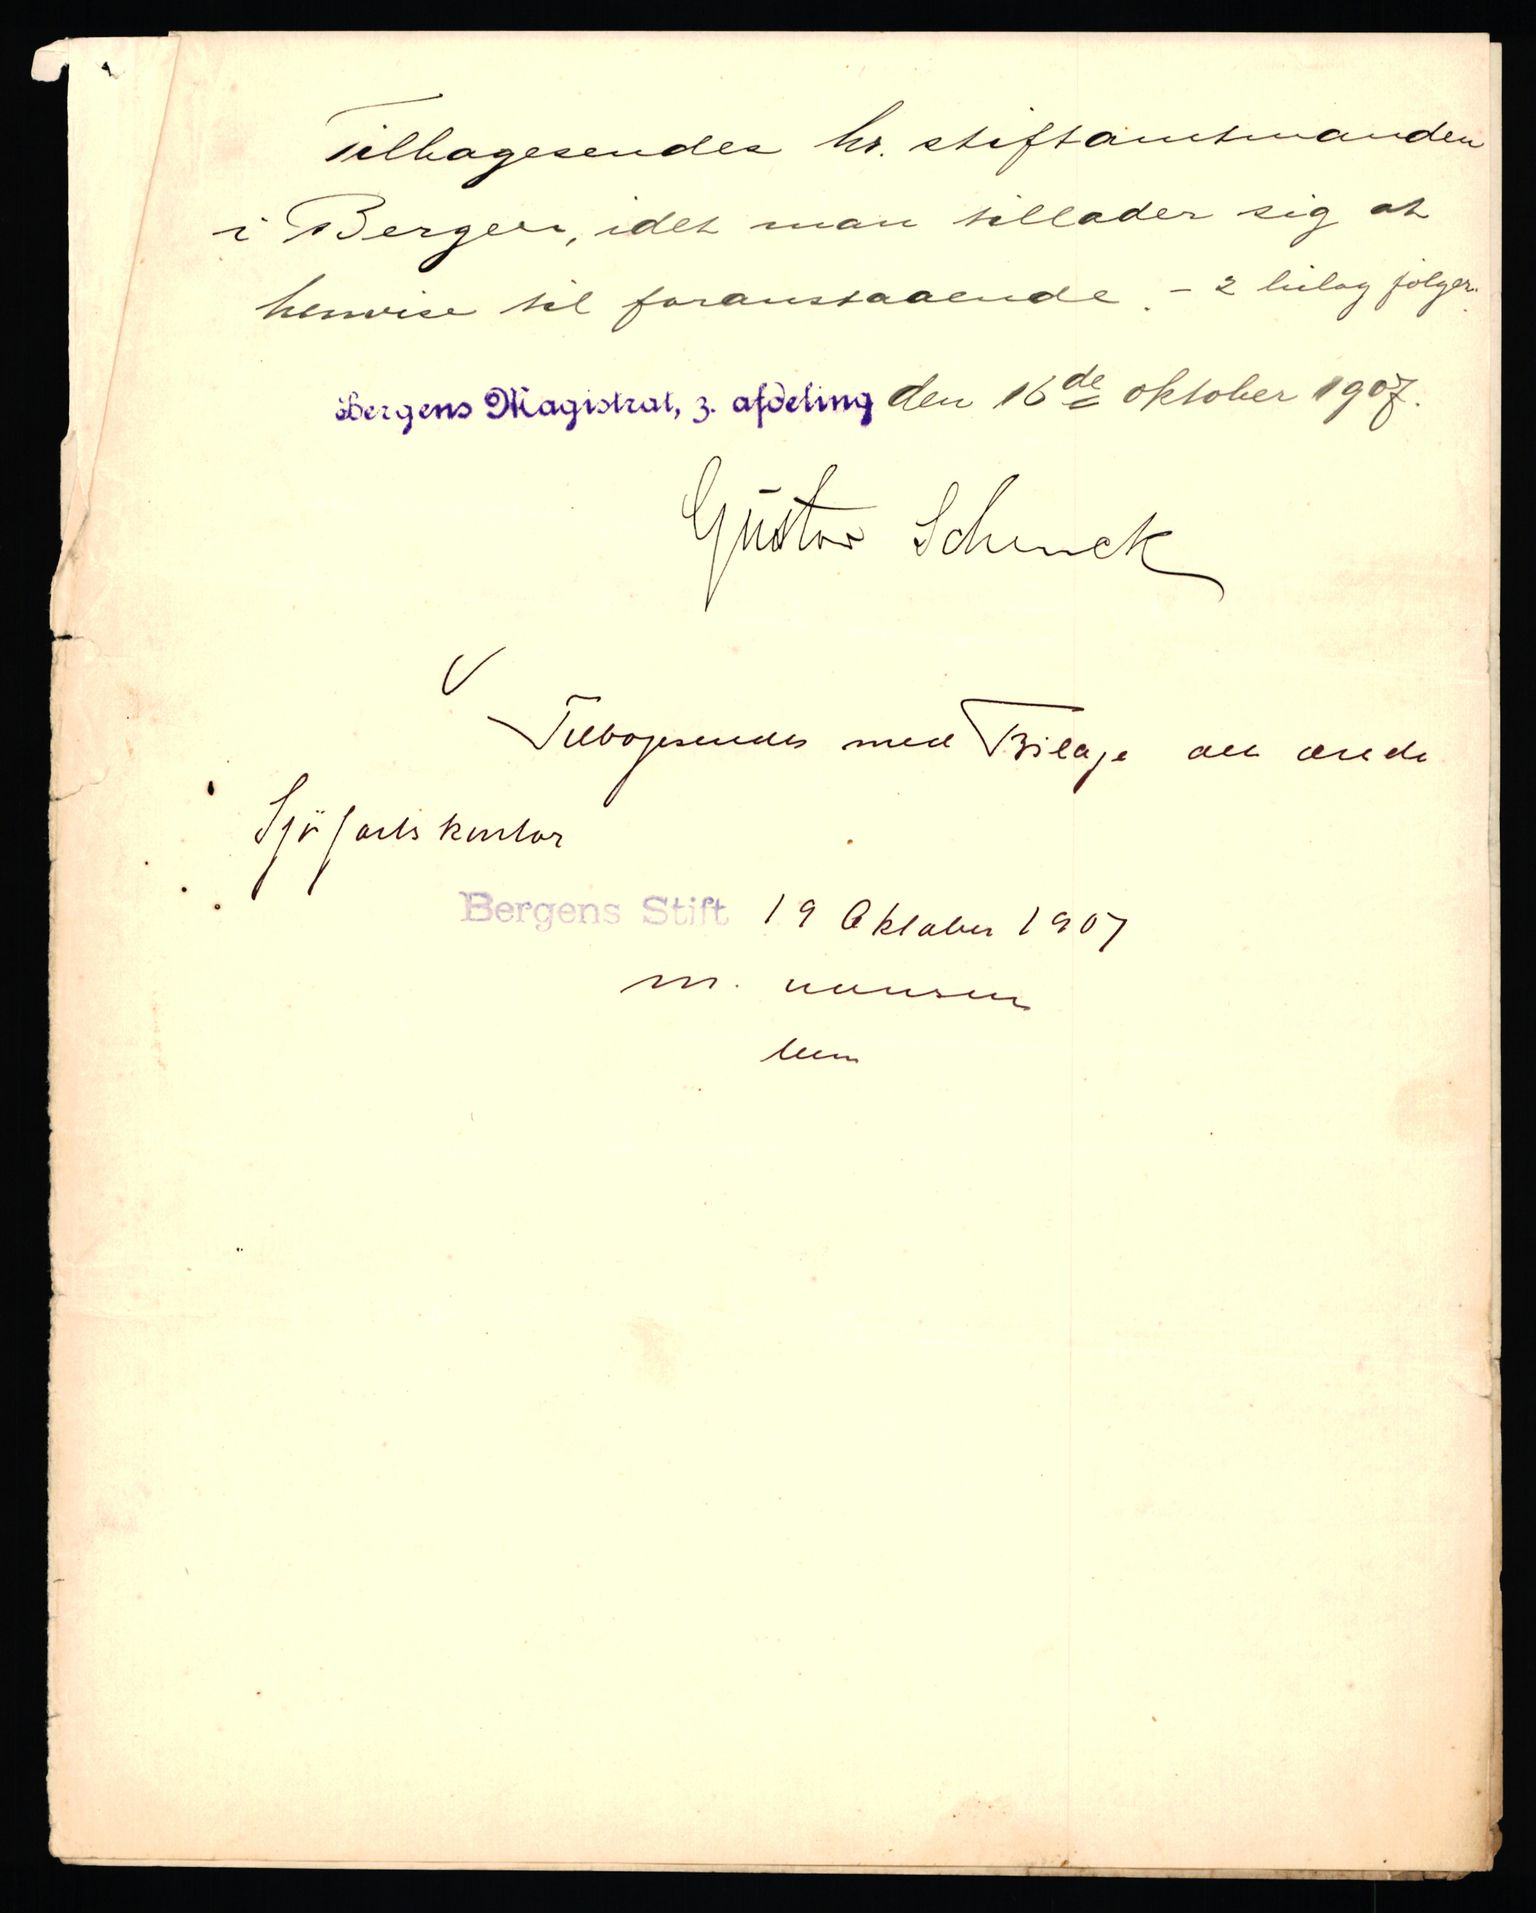 Tilbagesendes hr. stiftamtmanden
i Bergen, idet man tillader sig at
henvise til foranstaaende. - 2 bilag følger.
Bergens Magistrat, 3. afdeling den 16de oktober 1907.
Gustav Schenck
Tilbagesendes med Bilage det ærede
Sjöfartskontor
Bergens Stift 19 Oktober 1907
m.